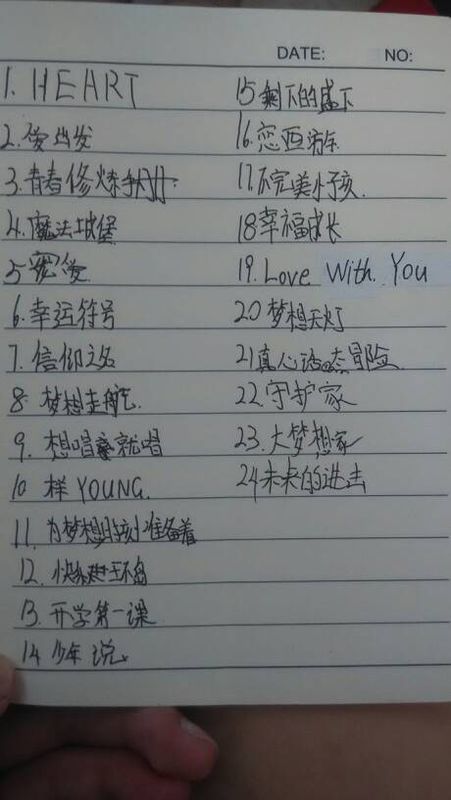 DATE: NO:
1. HEART
2.爱出发
3. 青春修炼手册
4. 魔法城堡
5 宠爱
6. 幸运符号
7. 信仰之名
8. 梦想起航
9. 想唱就唱
10 样 YOUNG.
11. 为梦想时刻准备着
12. 快乐环岛
13. 开学第一课
14 少年说
15 剩下的盛夏
16. 恋西游
17. 不完美小孩
18 幸福成长
19. Love With You
20 梦想天灯
21 真心话大冒险
22. 守护家
23. 大梦想家
24 未来的进击